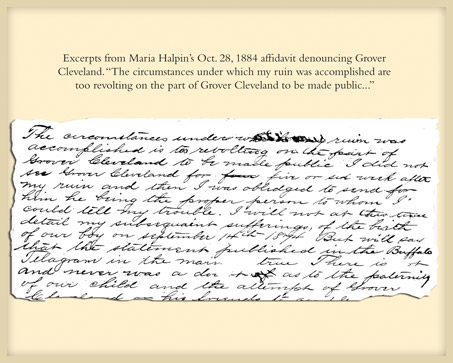 Excerpts from Maria Halpin's Oct. 28, 1884 affidavit denouncing Grover
Cleveland. “The circumstances under which my ruin was accomplished are
too revolting on the part of Grover Cleveland to be made public...”
The circumstances under ruin was
accomplished is too revolting on the part of
Grover Cleveland to be made public I did not
see Grover Cleveland for five or six week after
my ruin and then I was obliged to send for
him he being the proper person to whom I
could tell my trouble. I will not at this time
detail my subsequent sufferings, of the birth
of our boy on september 14th 1874 But will say
that the statement published in the Buffalo
Telagram in the main true There is
and never was a as to the paternity
of our child and the attempt of Grover